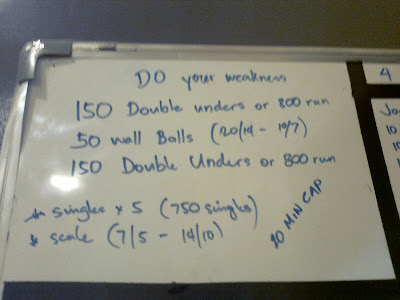 DO your weakness
150 Double unders or 800 run
50 wall Balls (20/14 - 10/7)
150 Double Unders or 800 run
* singles x 5 (750 singles)
* scale (7/5 - 14/10)
20 MIN CAP
4
10
10